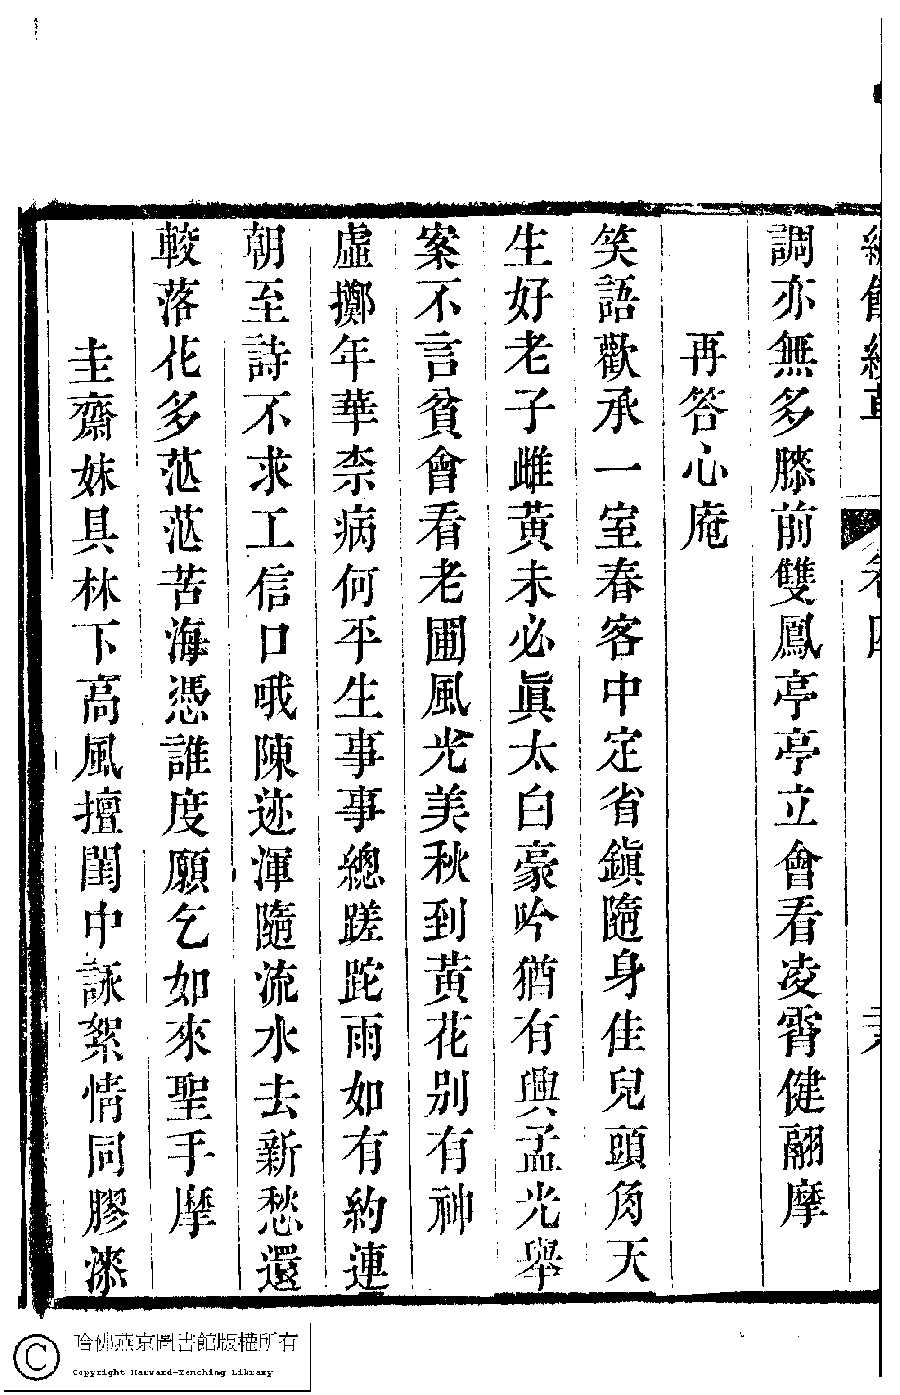 調亦無多膝前雙鳳亭亭立會看凌霄健翮摩
再答心庵
笑語歡承一室春客中定省鎭隨身佳兒頭角天
生好老子雌黃未必眞太白豪吟猶有興孟光舉
案不言貧會看老圃風光美秋到黃花别有神
虛擲年華柰病何平生事事總蹉跎雨如有約連
朝至詩不求工信口哦陳迹渾隨流水去新愁還
較落花多茫茫苦海憑誰度願乞如來聖手摩
圭齋妹具林下高風擅閨中詠絮情同膠漆
哈佛燕京圖書館版權所有
Copyright Harvard-Yenching Library